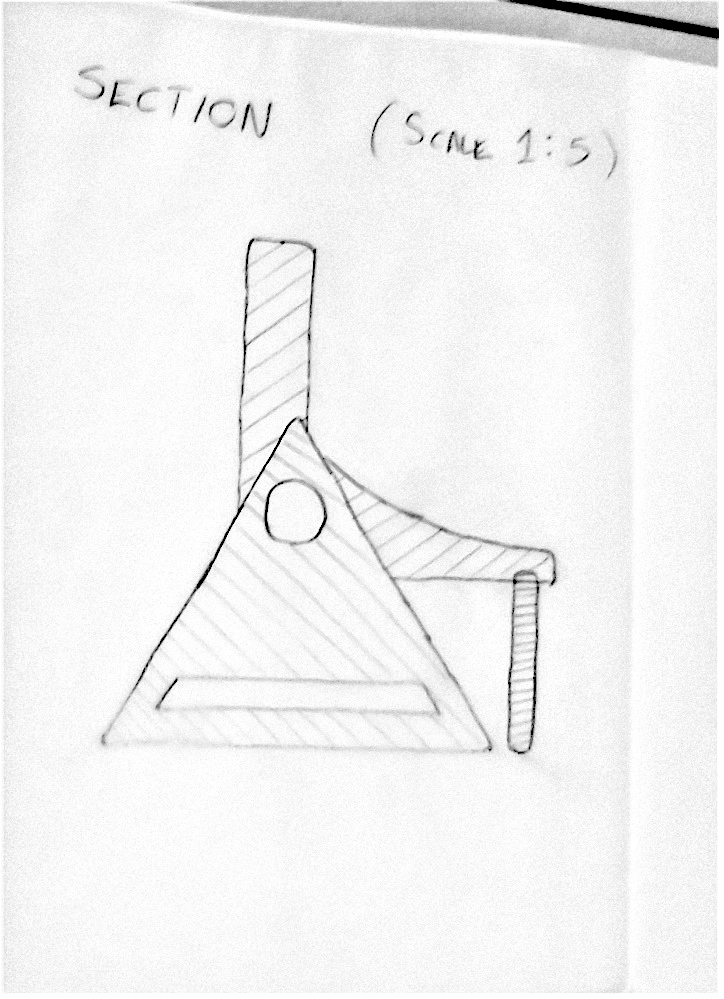 SECTION (SCALE 1:5)